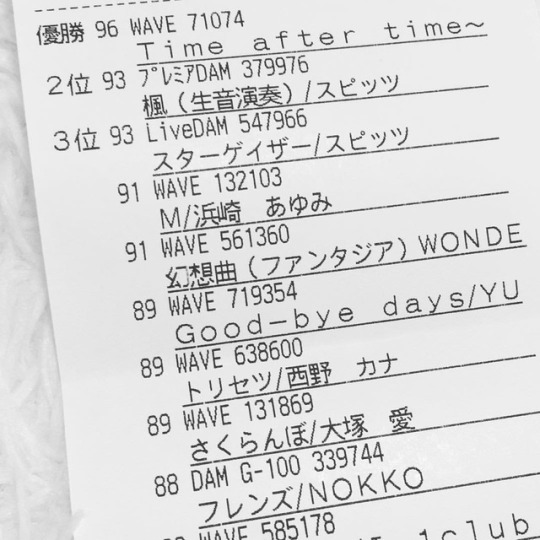 優勝 96 WAVE 71074
Time after time～
2位 93 ﾌﾟﾚﾐｱDAM 379976
楓（生音演奏）/スピッツ
3位 93 LiveDAM 547966
スターゲイザー/スピッツ
91 WAVE 132103
M/浜崎 あゆみ
91 WAVE 561360
幻想曲（ファンタジア）WONDE
89 WAVE 719354
Good-bye days/YU
89 WAVE 638600
トリセツ/西野 カナ
89 WAVE 131869
さくらんぼ/大塚 愛
88 DAM G-100 339744
フレンズ/NOKKO
WAVE 585178
1club